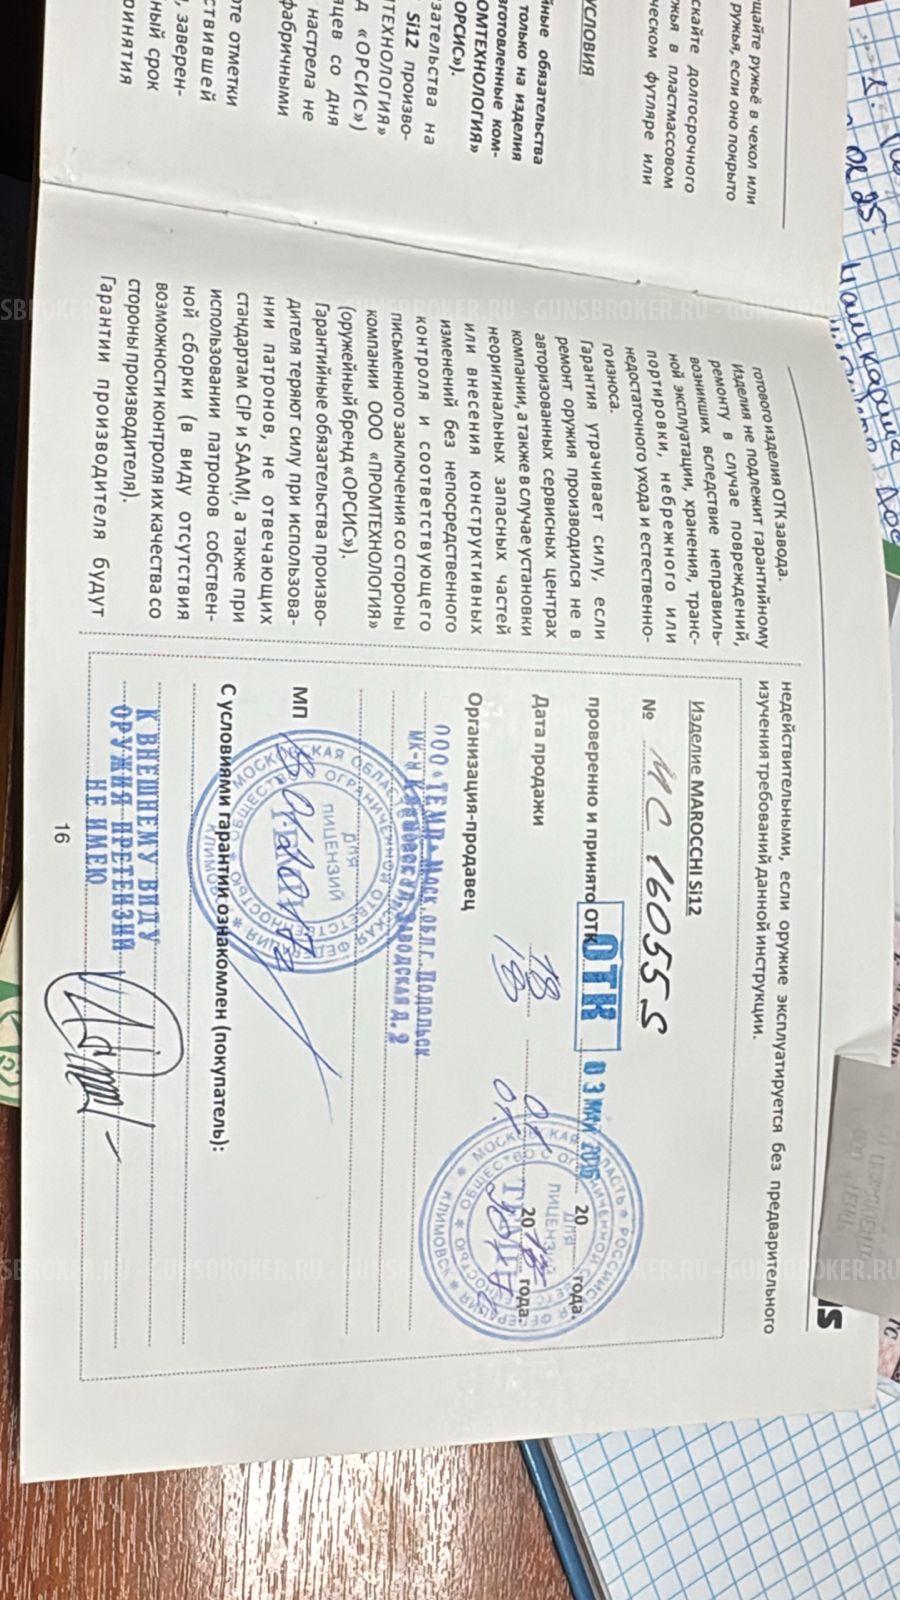 щайте ружьё в чехол или
ружья, если оно покрыто
скайте долгосрочного
жья в пластмассовом
ческом футляре или
УСЛОВИЯ
йные обязательства
только на изделия
зготовленные ком-
ОМТЕХНОЛОГИЯ»
ОРСИС»).
зательства на
Si12 произво-
ТЕХНОЛОГИЯ»
д «ОРСИС»)
яцев со дня
настрела не
фабричными
рте отметки
ствившей
, заверен-
ный срок
ринятия
готового изделия ОТК завода.
Изделия не подлежит гарантийному
ремонту в случае повреждений,
возникших вследствие неправиль-
ной эксплуатации, хранения, транс-
портировки, небрежного или
недостаточного ухода и естественно-
го износа.
Гарантия утрачивает силу, если
ремонт оружия производился не в
авторизованных сервисных центрах
компании, а также в случае установки
неоригинальных запасных частей
или внесения конструктивных
изменений без непосредственного
контроля и соответствующего
письменного заключения со стороны
компании ООО «ПРОМТЕХНОЛОГИЯ»
(оружейный бренд «ОРСИС»).
Гарантийные обязательства произво-
дителя теряют силу при использова-
нии патронов, не отвечающих
стандартам CIP и SAAMI, а также при
использовании патронов собствен-
ной сборки (в виду отсутствия
возможности контроля их качества со
стороны производителя).
Гарантии производителя будут
недействительными, если оружие эксплуатируется без предварительного
изучения требований данной инструкции.
Изделие MAROCCHI Si12
№ ИС 16055S
проверено и принято ОТК ОТК 03 МАЙ 2016 20 года.
Дата продажи 18 07 2018 года.
18 07
Организация-продавец
ООО «ТЕМП» Моск.обл.г.Подольск
мк-н Климовск,ул.Заводская д.2
МП
ДЛЯ
ЛИЦЕНЗИЙ
С условиями гарантии ознакомлен (покупатель):
К ВНЕШНЕМУ ВИДУ
ОРУЖИЯ ПРЕТЕНЗИЙ
НЕ ИМЕЮ
16
GUNSBROKER.RU - GUNSBROKER.RU
GUNSBROKER.RU - GUNSBROKER.RU